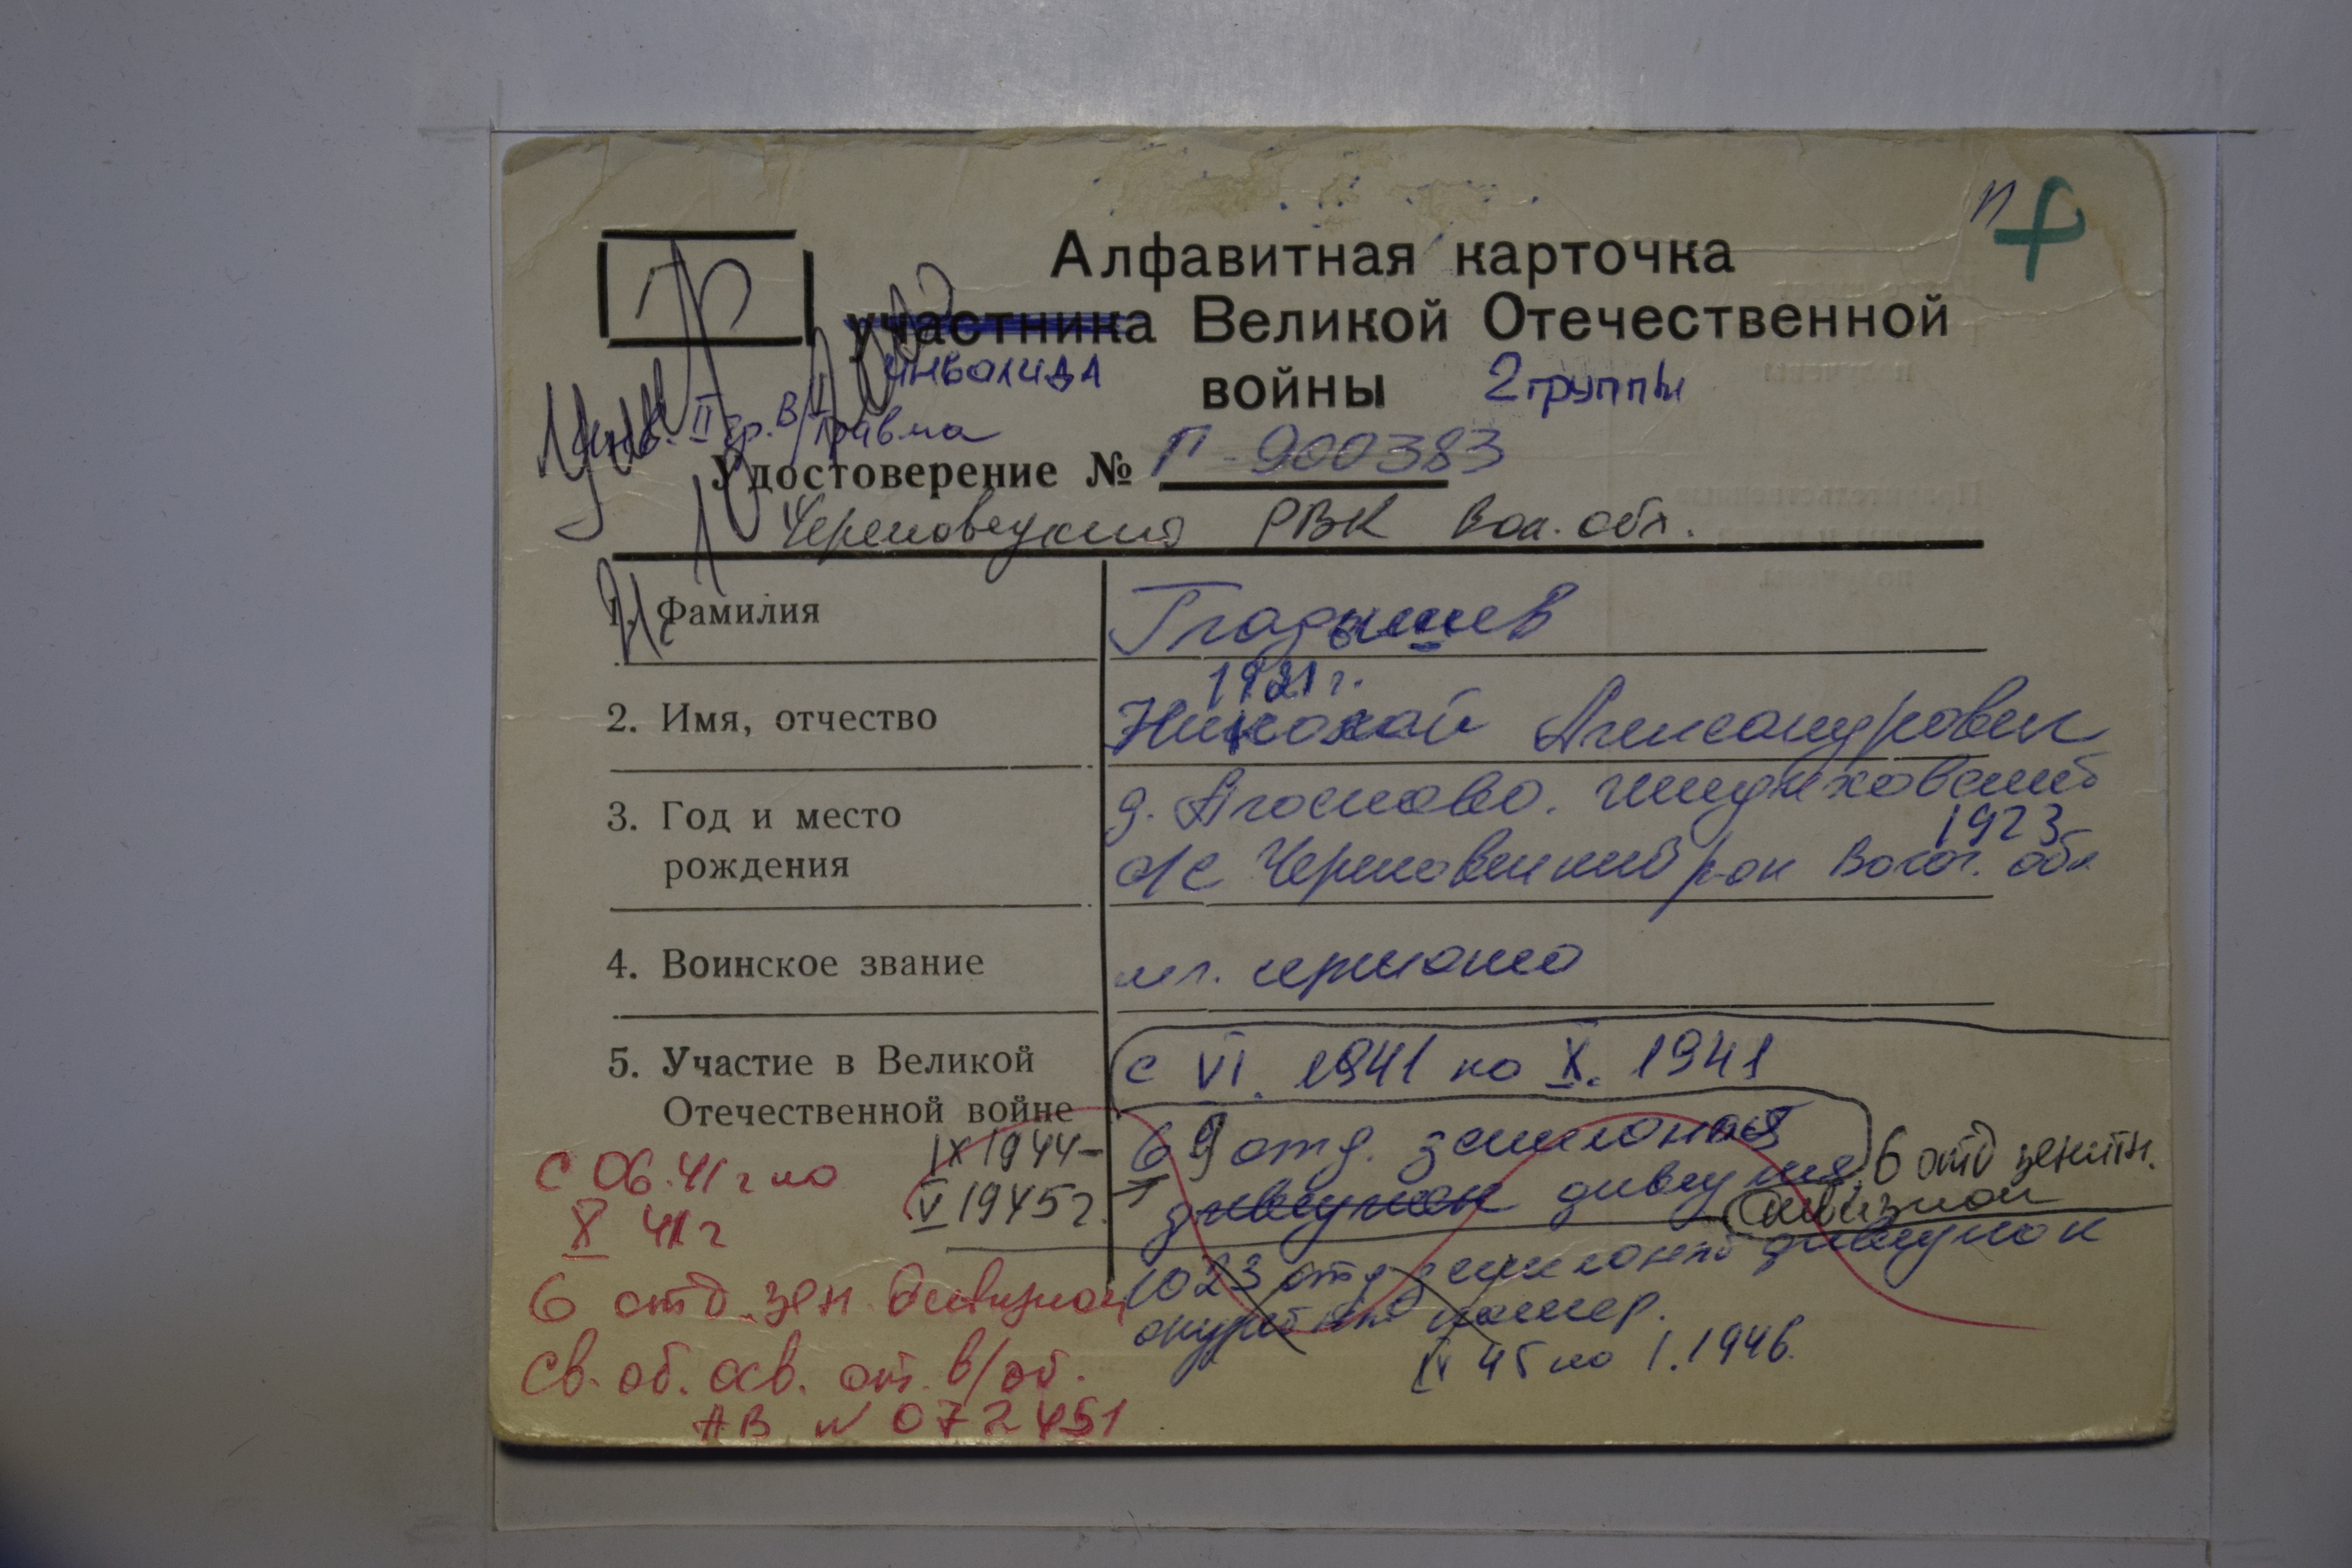 п
Алфавитная карточка
участника Великой Отечественной
инвалида
войны 2 группы
инв. II гр. в/травма
Удостоверение № П-900383
Череповецкий РВК Вол. обл.
1. Фамилия Гладышев
1921 г.
2. Имя, отчество Николай Александрович
3. Год и место рождения д.
1923
с/с Череповецкий р-он Волог. обл
4. Воинское звание мл. сержант
5. Участие в Великой Отечественной войне с VI. 1941 по X. 1941
IX 1944-
V 1945 г.
69 отд. зенитный
дивизион дивизия
6 отд зенитн.
дивизион
1023 отд зенитный дивизион
IV 45 по I. 1946.
с 06.41 г по
X 41 г
6 отд. зен. дивизион
Св. об. осв. от в/об.
АВ № 072451